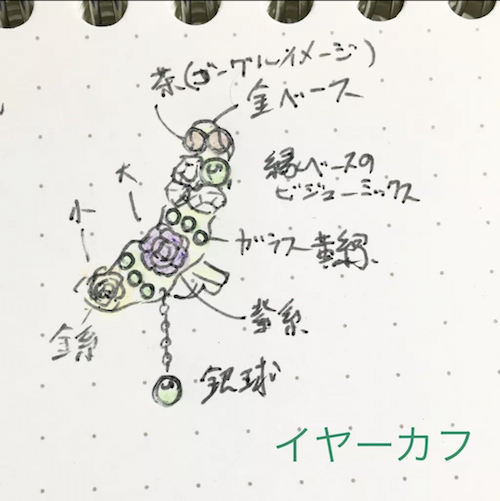 茶(ゴーグルイメージ)
金ベース
緑ベースの
ビジューミックス
大
小
ガラス
紫系
金系
銀球
イヤーカフ